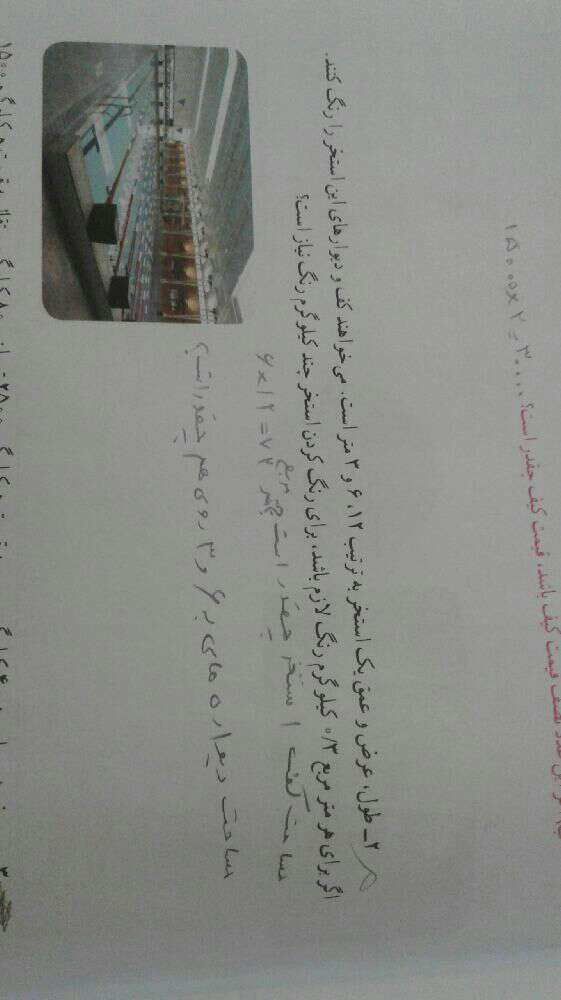 نصف قیمت کیف باشد، قیمت کیف چقدر است؟
۱۵۰۰۰×۲=۳۰۰۰۰
۲_ طول، عرض و عمق یک استخر به ترتیب ۱۲، ۶ و ۳ متر است. می‌خواهند کف و دیوارهای این استخر را رنگ کنند.
اگر برای هر متر مربع ۰/۳ کیلوگرم رنگ لازم باشد، برای رنگ کردن استخر چند کیلوگرم رنگ نیاز است؟
مساحت کف استخر چقدر است؟ ۶×۱۲=۷۲ متر مربع
مساحت دیواره های ۶ و ۳ روی هم چقدر است؟